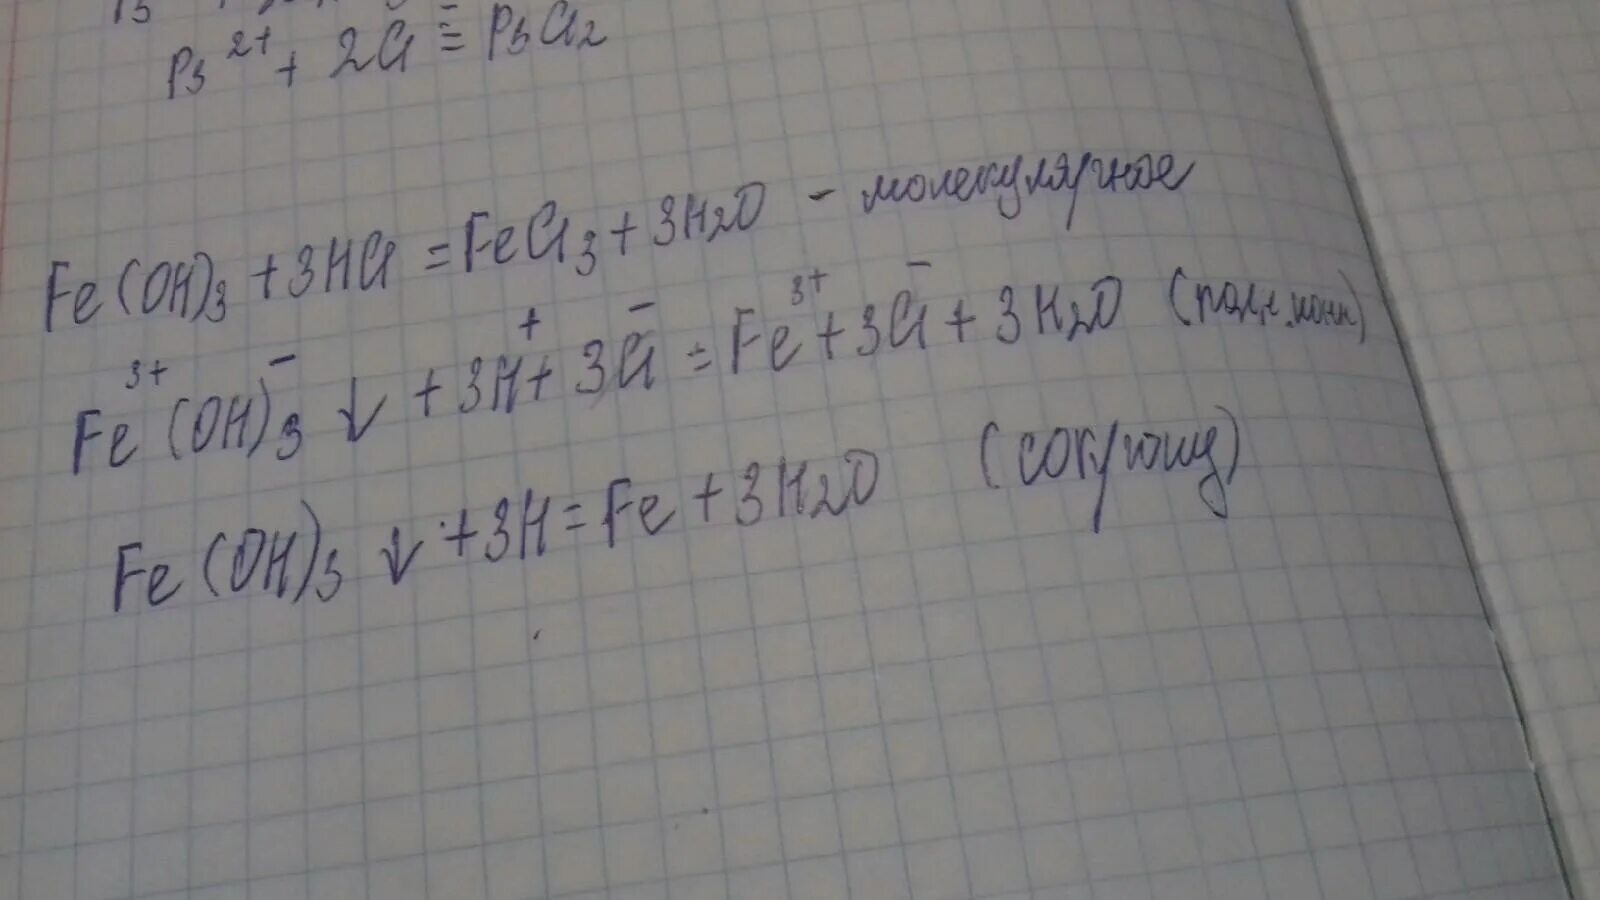 Pb²⁺ + 2Cl⁻ = PbCl2
Fe(OH)3 + 3HCl = FeCl3 + 3H2O - молекулярное
Fe³⁺(OH)⁻3 ↓ + 3H⁺ + 3Cl⁻ = Fe³⁺ + 3Cl⁻ + 3H2O (полн.ионн)
Fe(OH)3 ↓ + 3H = Fe + 3H2O